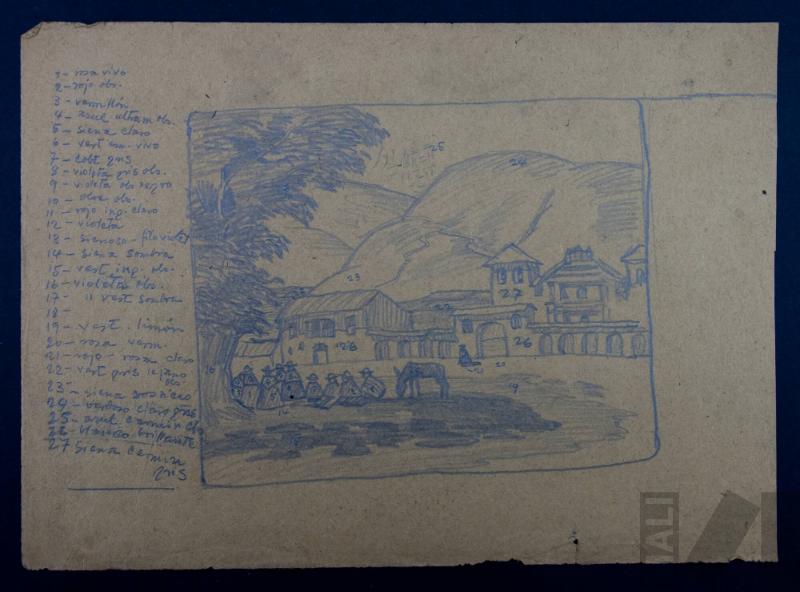 1 - rosa vivo
2 - rojo obs.
3 - vermillón
4 - azul ultram obs.
5 - siena claro
6 - verd esm. vivo
7 - cobt gris
8 - violeta gris obs.
9 - violeta obs negro
10 - obs.
11 - rojo ing. claro
12 - violeta
13 - sienoso -
14 - siena sombra
15 - verd ing. obs.
16 - violetas obs.
17 - " verd sombra
18 -
19 - verd. limón
20 - rosa verm.
21 - rojo - rosa claro
22 - verd gris lejano
obs
23 - siena rosáceo
24 - verdoso claro gris
25 - azul obs
26 - blanco brillante
27 Siena
gris
25
24
23
27
26
26
20
19
16
12
MALI